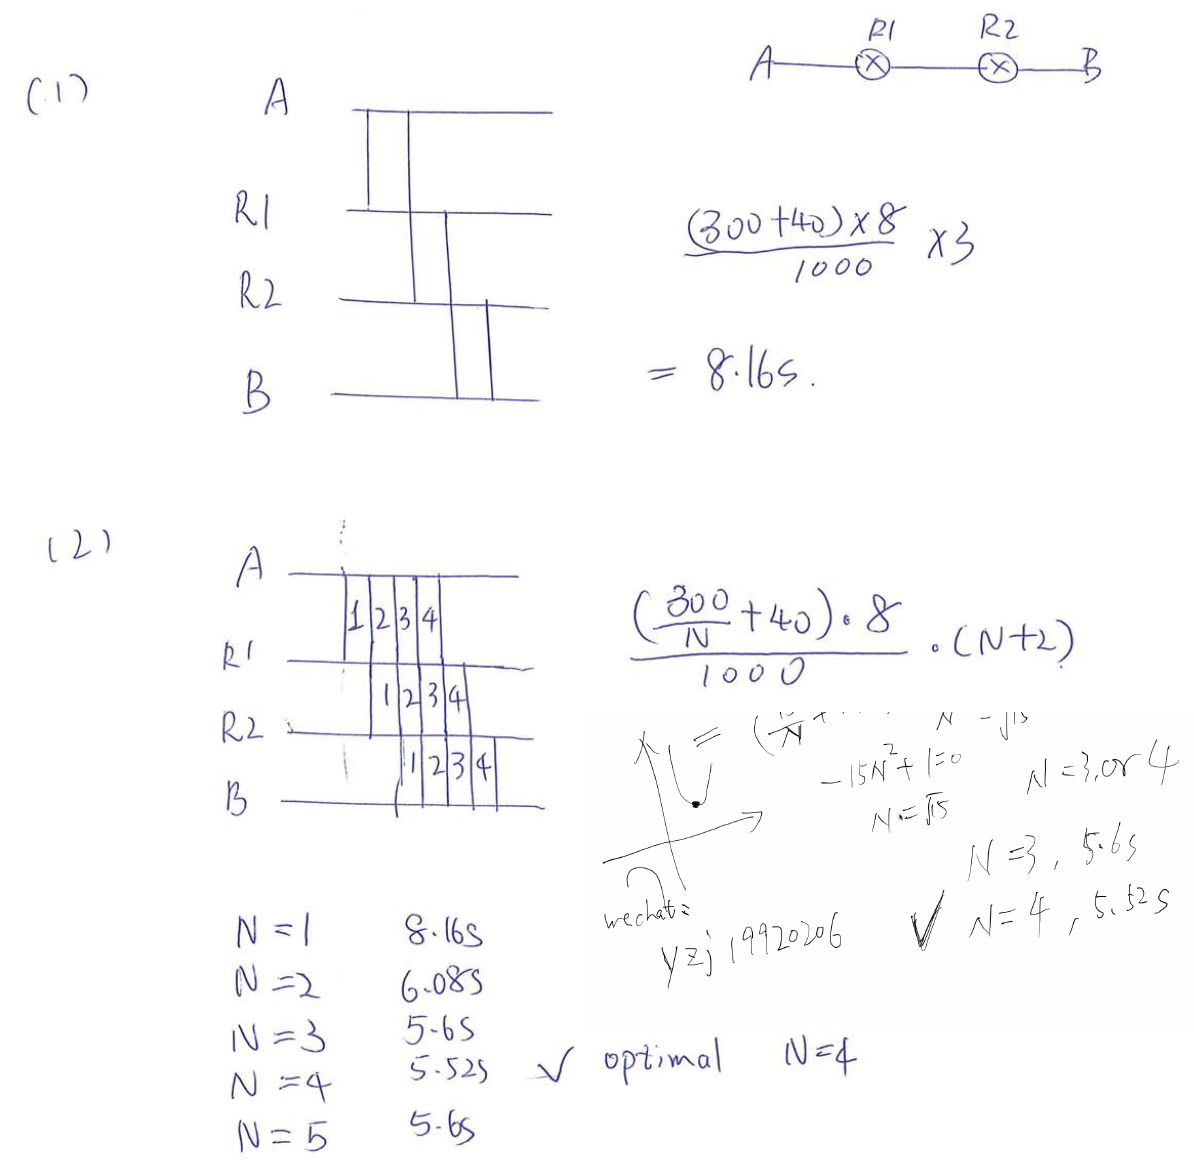 R1 R2
A B
(1)
A
R1
R2
B
(300+40)×8
1000
×3
= 8.16s.
(2)
A
R1
R2
B
1 2 3 4
1 2 3 4
1 2 3 4
(300/N+40)·8
1000
·(N+2)
=
-15N²+1=0
N=√15
N=3,or 4
N=3, 5.6s
✓ N=4, 5.52s
wechat:
yzj19920206
N=1 8.16s
N=2 6.08s
N=3 5.6s
N=4 5.52s ✓ optimal N=4
N=5 5.6s